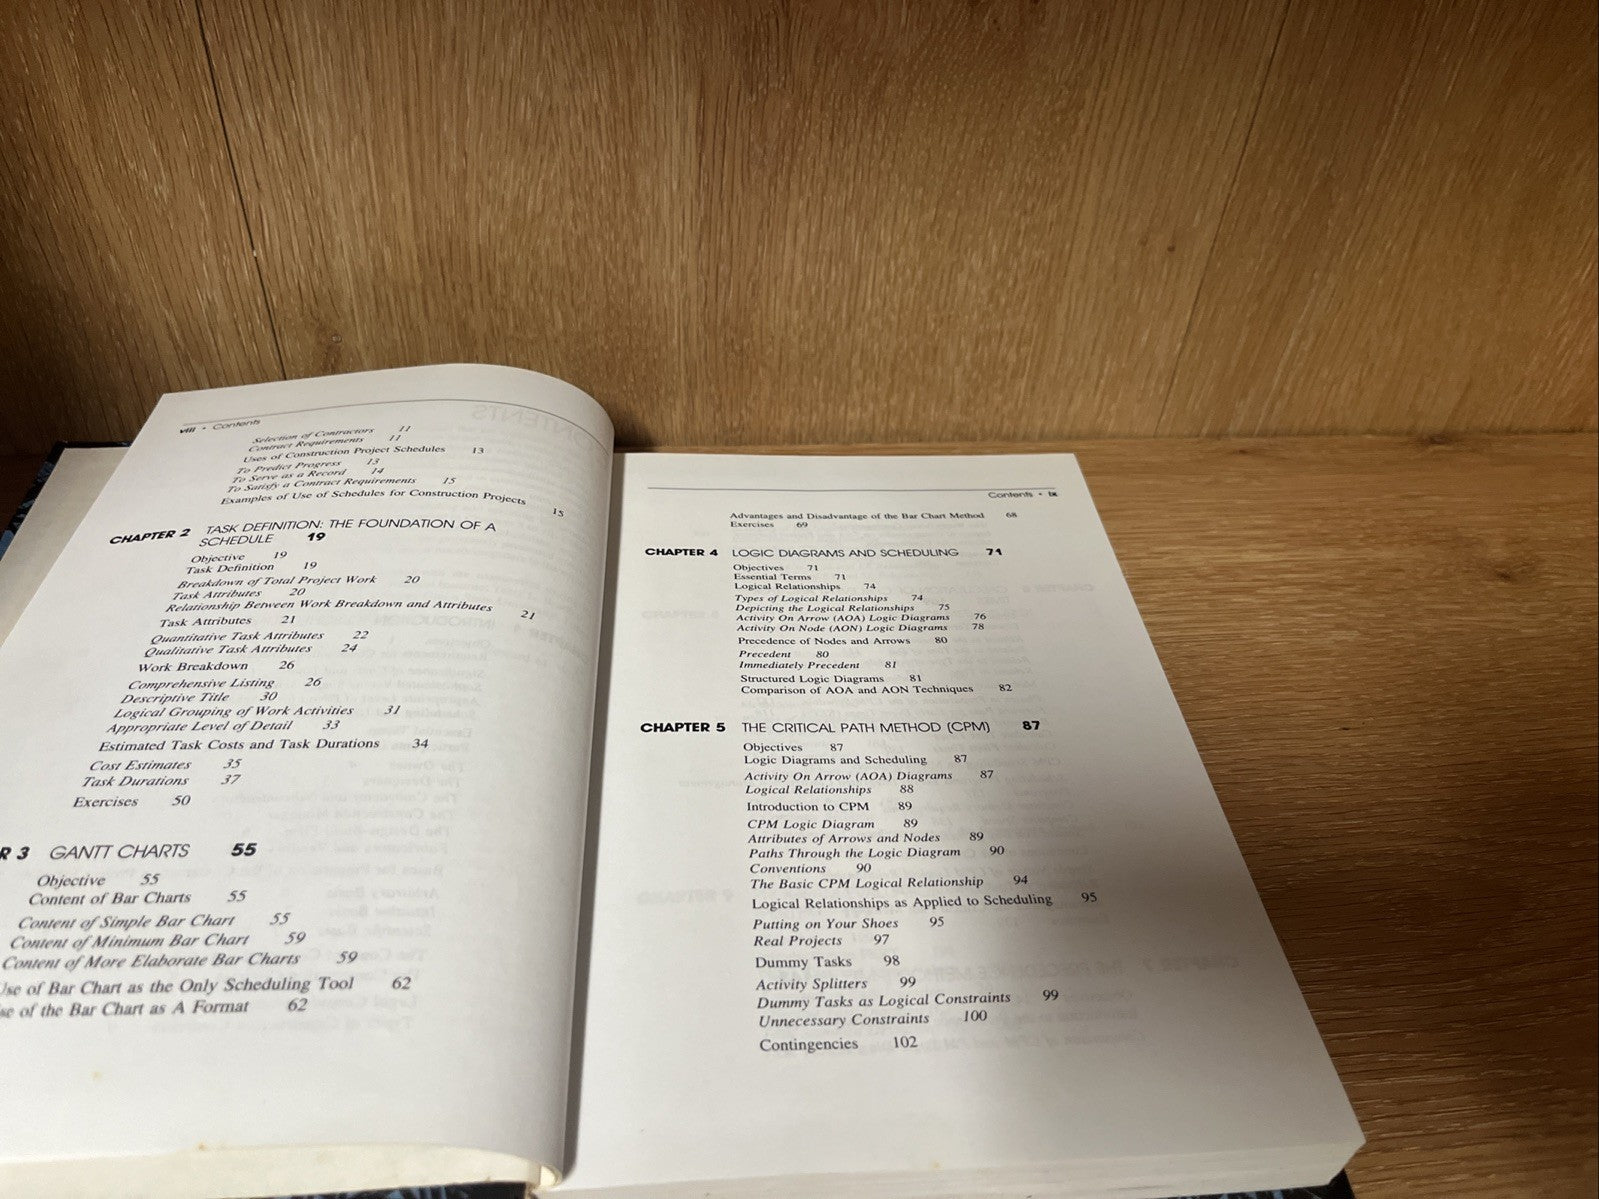 viii • Contents
Selection of Contractors 11
Contract Requirements 11
Uses of Construction Project Schedules 13
To Predict Progress 13
To Serve as a Record 14
To Satisfy a Contract Requirements 15
Examples of Use of Schedules for Construction Projects 15
CHAPTER 2 TASK DEFINITION: THE FOUNDATION OF A
SCHEDULE 19
Objective 19
Task Definition 19
Breakdown of Total Project Work 20
Task Attributes 20
Relationship Between Work Breakdown and Attributes 21
Task Attributes 21
Quantitative Task Attributes 22
Qualitative Task Attributes 24
Work Breakdown 26
Comprehensive Listing 26
Descriptive Title 30
Logical Grouping of Work Activities 31
Appropriate Level of Detail 33
Estimated Task Costs and Task Durations 34
Cost Estimates 35
Task Durations 37
Exercises 50
R 3 GANTT CHARTS 55
Objective 55
Content of Bar Charts 55
Content of Simple Bar Chart 55
Content of Minimum Bar Chart 59
Content of More Elaborate Bar Charts 59
Use of Bar Chart as the Only Scheduling Tool 62
se of the Bar Chart as A Format 62
Contents • ix
Advantages and Disadvantage of the Bar Chart Method 68
Exercises 69
CHAPTER 4 LOGIC DIAGRAMS AND SCHEDULING 71
Objectives 71
Essential Terms 71
Logical Relationships 74
Types of Logical Relationships 74
Depicting the Logical Relationships 75
Activity On Arrow (AOA) Logic Diagrams 76
Activity On Node (AON) Logic Diagrams 78
Precedence of Nodes and Arrows 80
Precedent 80
Immediately Precedent 81
Structured Logic Diagrams 81
Comparison of AOA and AON Techniques 82
CHAPTER 5 THE CRITICAL PATH METHOD (CPM) 87
Objectives 87
Logic Diagrams and Scheduling 87
Activity On Arrow (AOA) Diagrams 87
Logical Relationships 88
Introduction to CPM 89
CPM Logic Diagram 89
Attributes of Arrows and Nodes 89
Paths Through the Logic Diagram 90
Conventions 90
The Basic CPM Logical Relationship 94
Logical Relationships as Applied to Scheduling 95
Putting on Your Shoes 95
Real Projects 97
Dummy Tasks 98
Activity Splitters 99
Dummy Tasks as Logical Constraints 99
Unnecessary Constraints 100
Contingencies 102